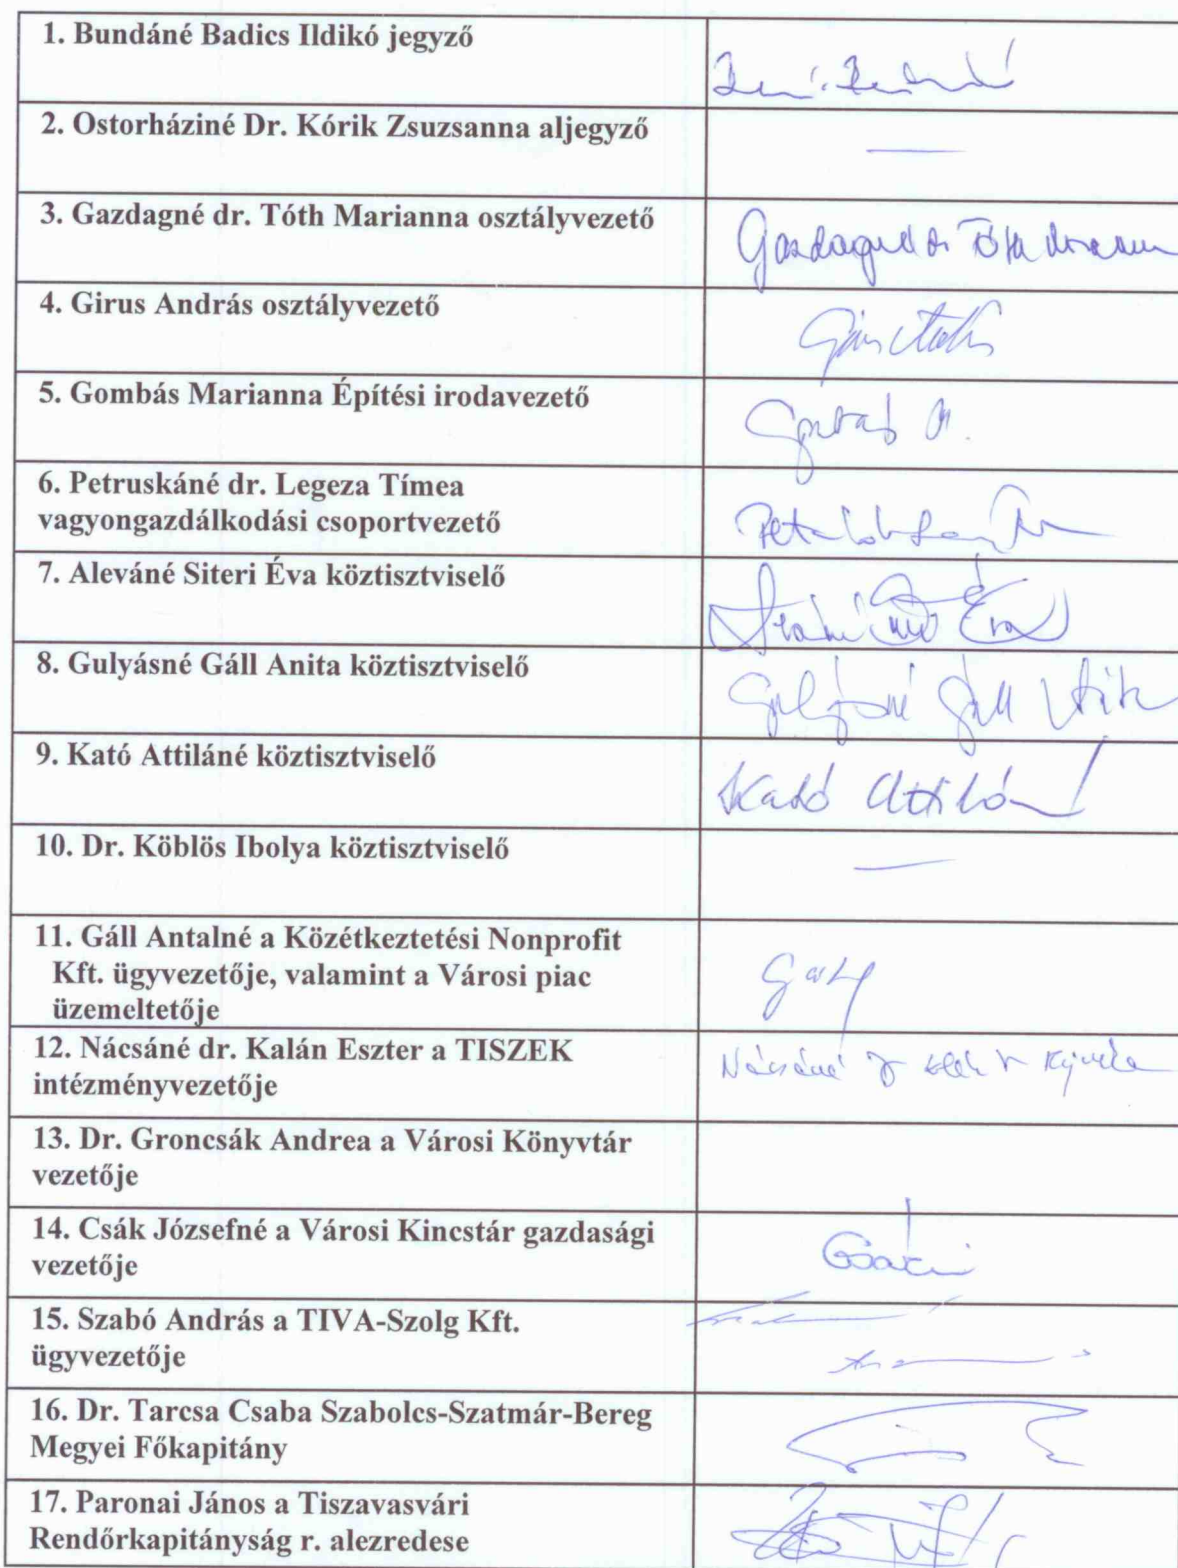 1. Bundáné Badics Ildikó jegyző
2. Ostorháziné Dr. Kórik Zsuzsanna aljegyző
3. Gazdagné dr. Tóth Marianna osztályvezető
Gazdagné dr Tóth
4. Girus András osztályvezető
5. Gombás Marianna Építési irodavezető
Gombás M.
6. Petruskáné dr. Legeza Tímea
vagyongazdálkodási csoportvezető
7. Aleváné Siteri Éva köztisztviselő
Éva
8. Gulyásné Gáll Anita köztisztviselő
Gulyásné Gáll Anita
9. Kató Attiláné köztisztviselő
Kató Attiláné
10. Dr. Köblös Ibolya köztisztviselő
11. Gáll Antalné a Közétkeztetési Nonprofit
Kft. ügyvezetője, valamint a Városi piac
üzemeltetője
12. Nácsáné dr. Kalán Eszter a TISZEK
intézményvezetője
Nácsáné
13. Dr. Groncsák Andrea a Városi Könyvtár
vezetője
14. Csák Józsefné a Városi Kincstár gazdasági
vezetője
15. Szabó András a TIVA-Szolg Kft.
ügyvezetője
16. Dr. Tarcsa Csaba Szabolcs-Szatmár-Bereg
Megyei Főkapitány
17. Paronai János a Tiszavasvári
Rendőrkapitányság r. alezredese